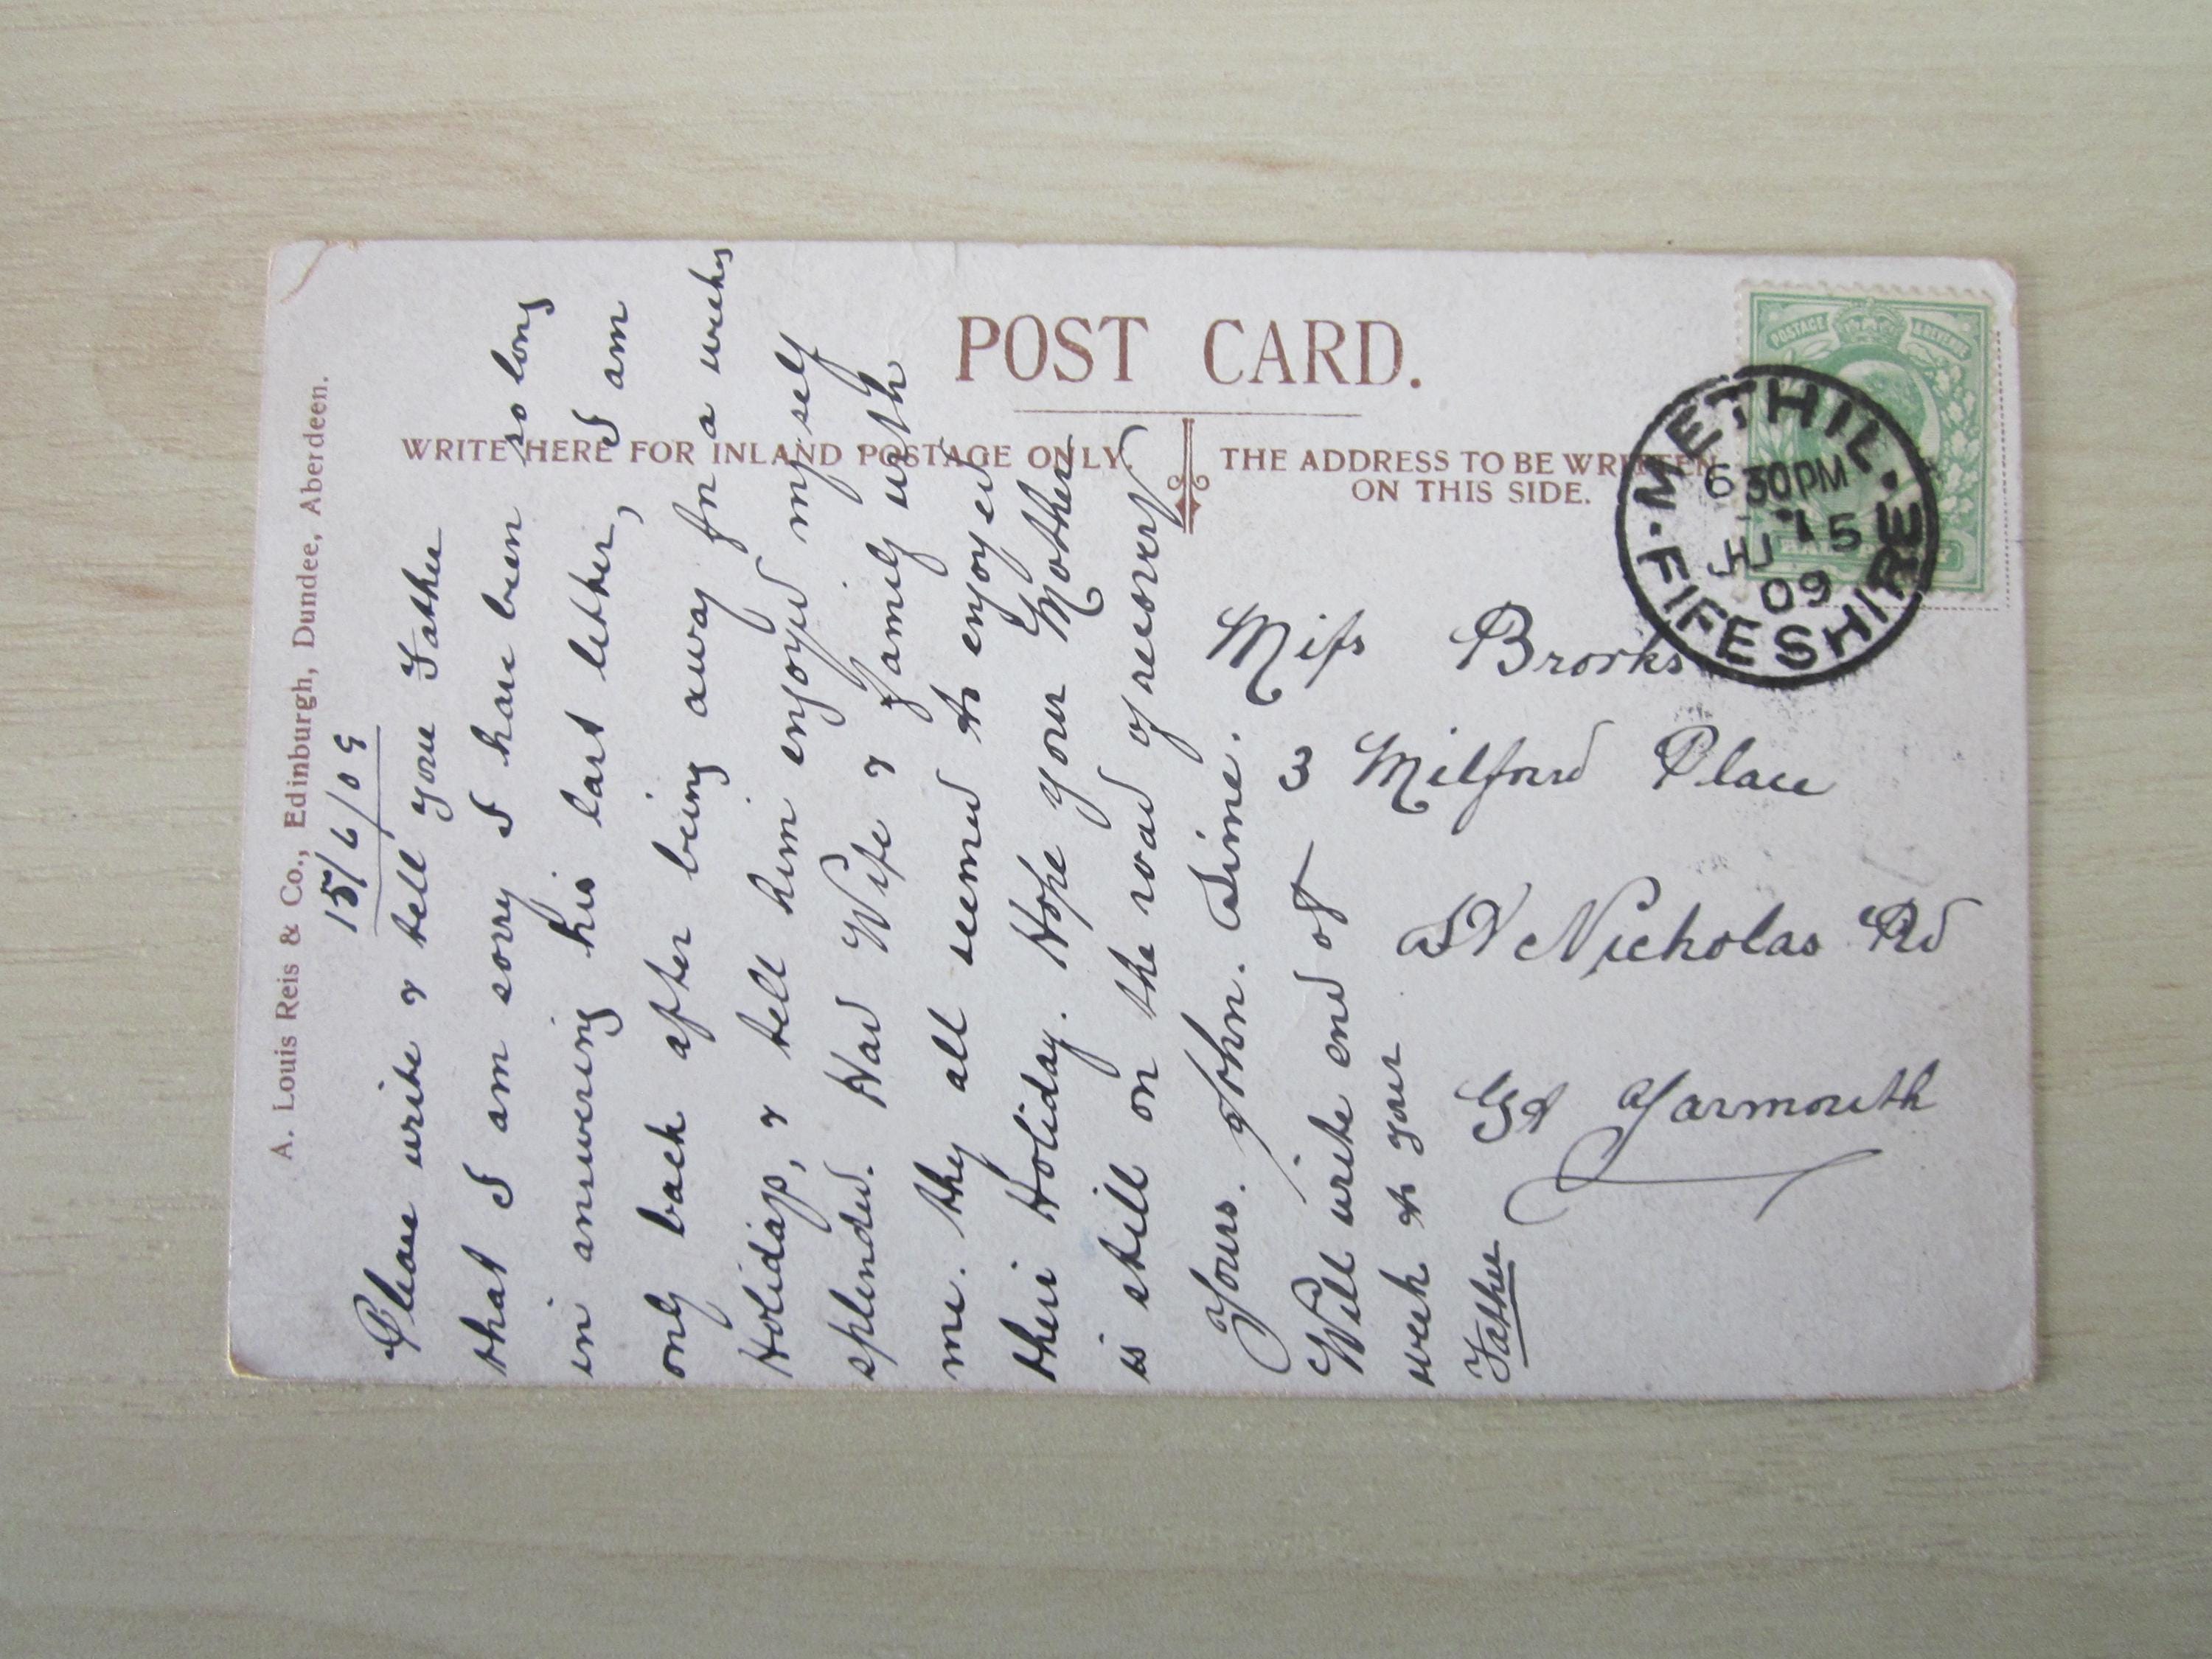 A. Louis Reis & Co., Edinburgh, Dundee, Aberdeen.
POST CARD.
WRITE HERE FOR INLAND POSTAGE ONLY.
THE ADDRESS TO BE WRITTEN
ON THIS SIDE.
15/6/09
Please write & tell your Father
that I am sorry I have been so long
in answering his last letter, I am
only back after being away for a weeks
Holidays, & tell him enjoyed myself
splended. Had Wife & family with
me. they all seemed to enjoyed
their Holiday. Hope your Mother
is still on the road of recovery
Yours. John. Sime.
Will write end of
week to your
Father
Miss Brooks
3 Milford Place
St Nicholas Rd
Gt Yarmouth
POSTAGE & REVENUE
METHIL
6 30 PM
JU 15
09
FIFESHIRE